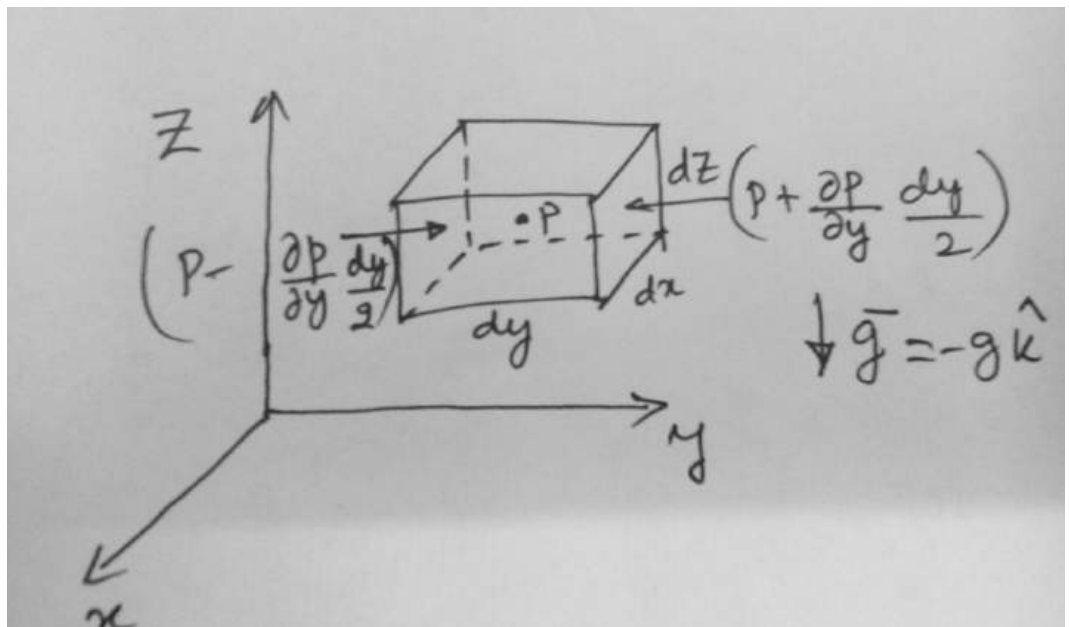 Z
dz
(P + ∂P/∂y dy/2)
•P
(P - ∂P/∂y dy/2)
dx
dy
↓ g̅ = -g k̂
y
x